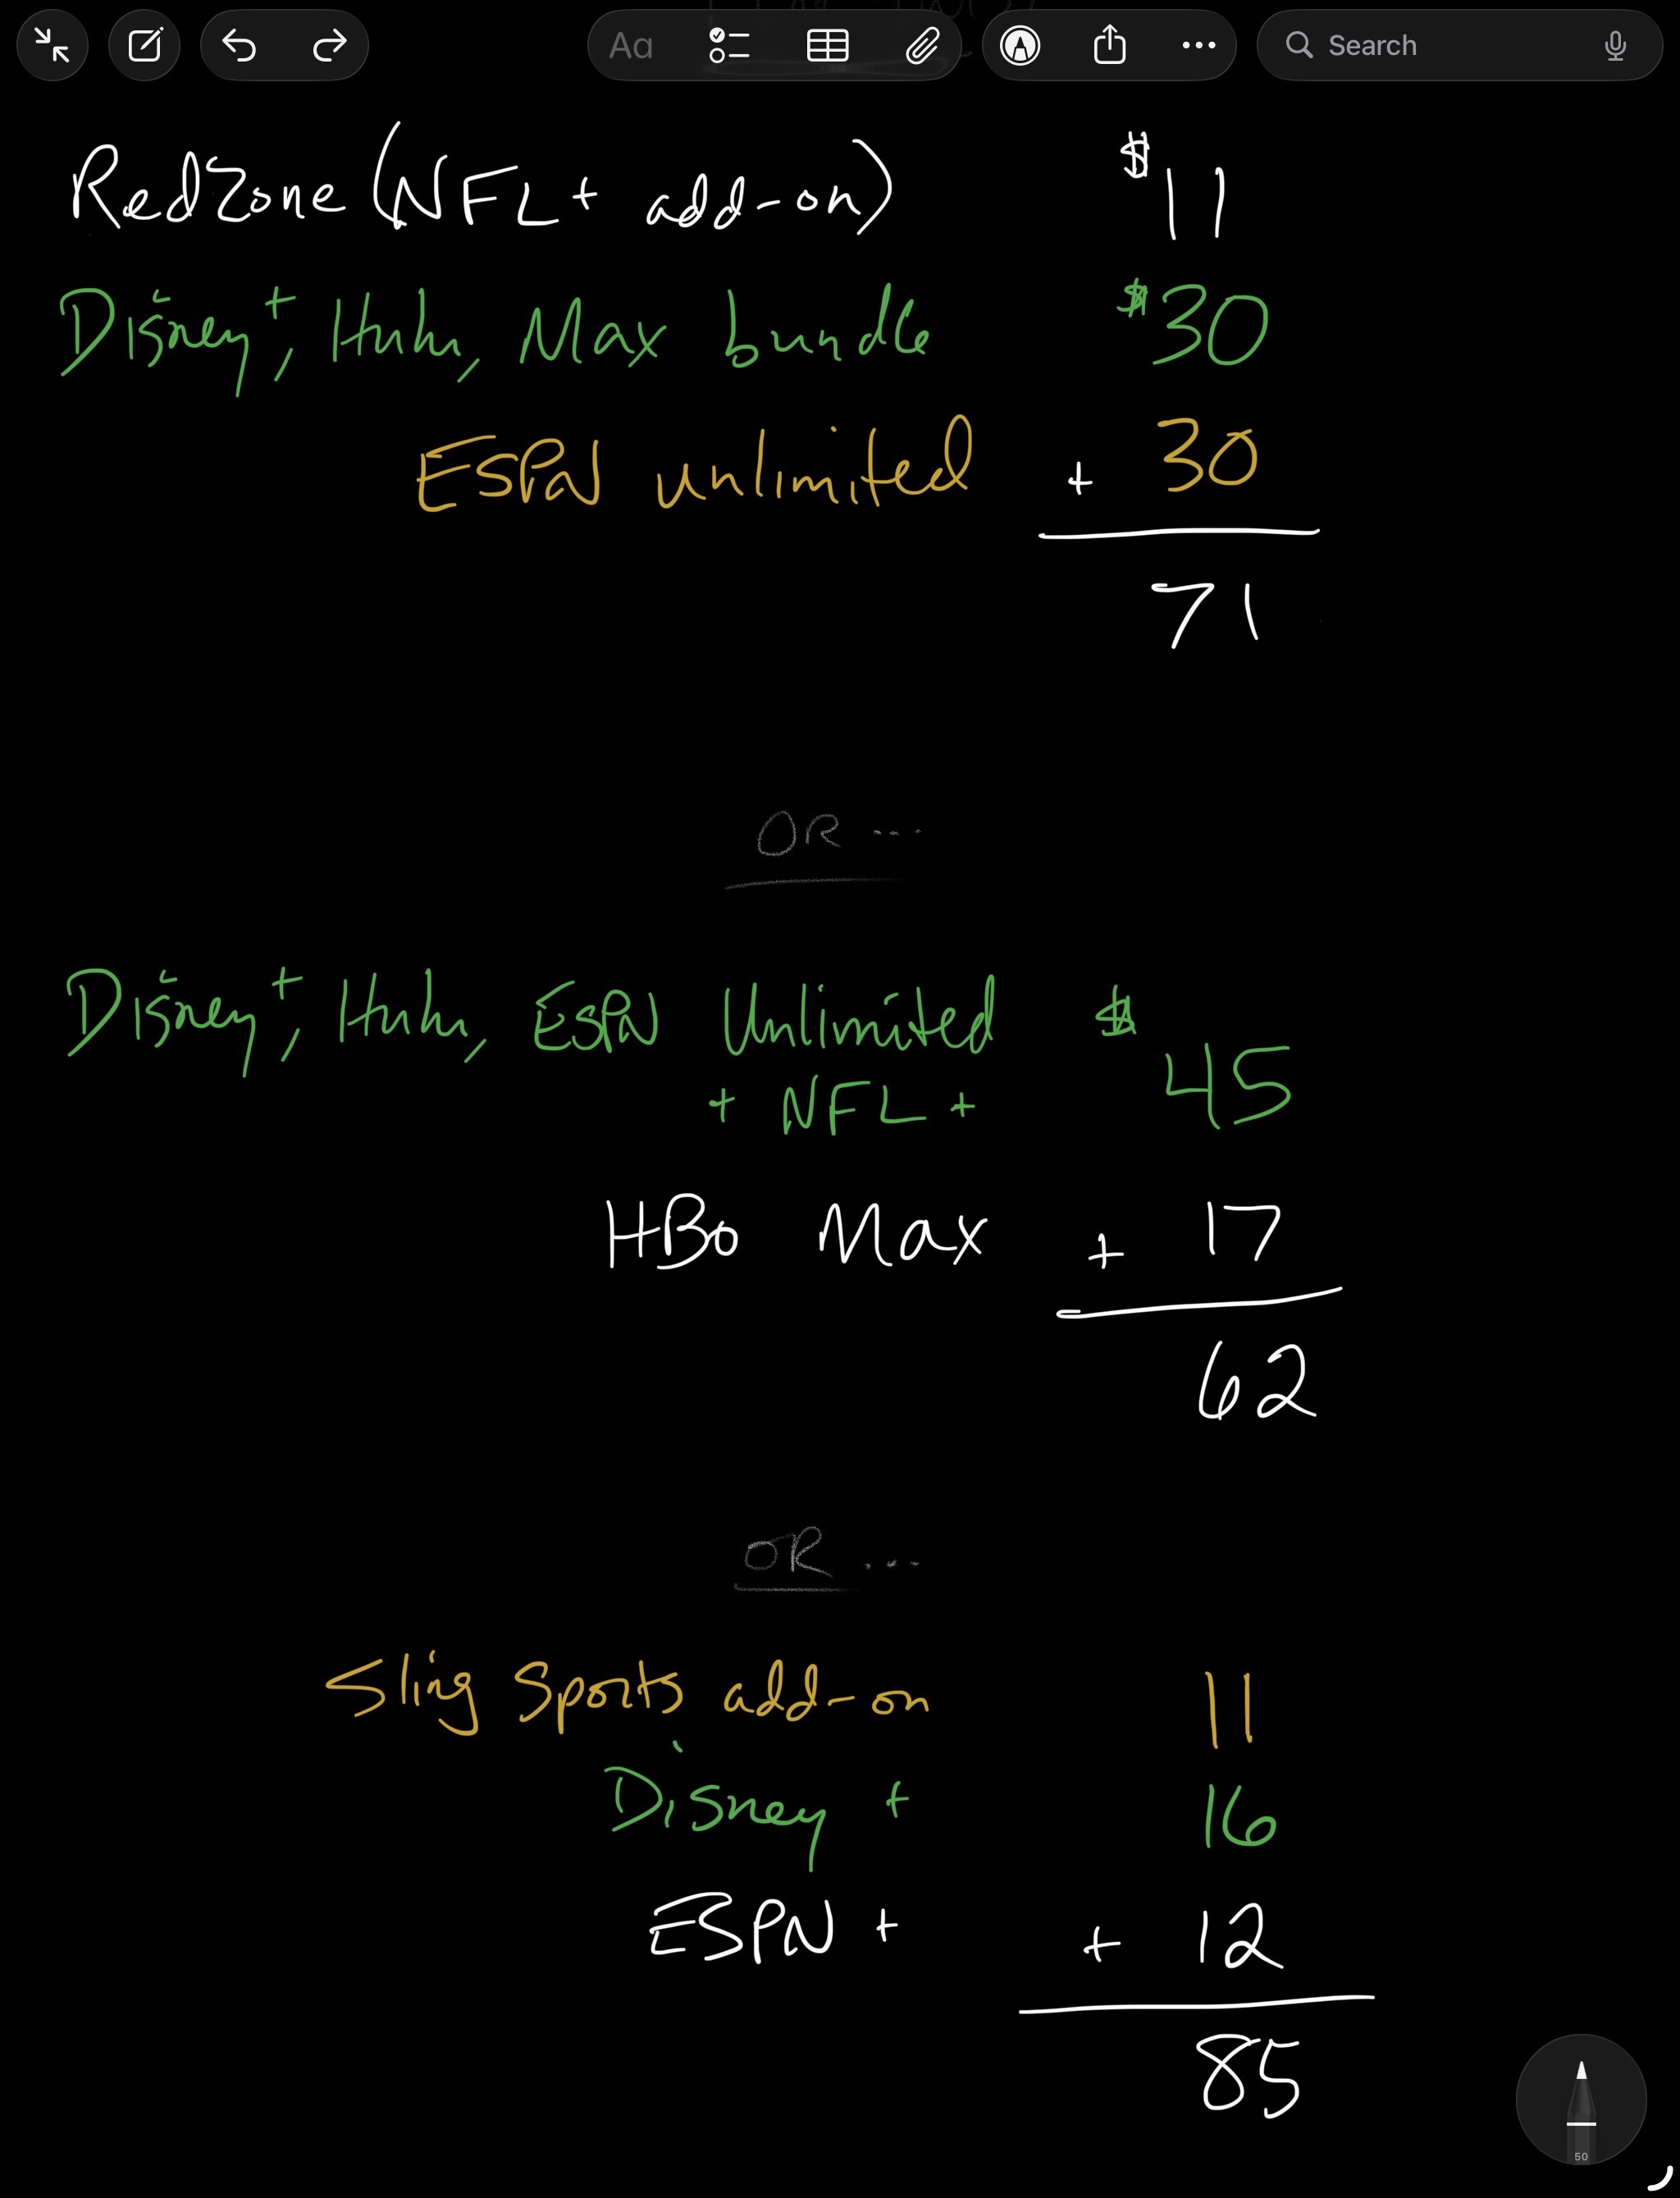 Aa Search
RedZone (NFL+ add-on) $11
Disney+, Hulu, Max bundle $30
ESPN unlimited + 30
71
OR ...
Disney+, Hulu, ESPN Unlimited $
+ NFL + 45
HBO Max + 17
62
OR ...
Sling Sports add-on 11
Disney + 16
ESPN + + 12
85
50